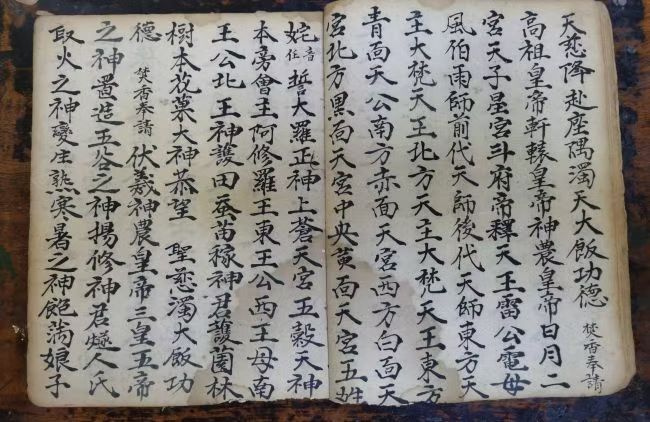 天慈降赴座隅濁天大飯功德 焚香奉請
高祖皇帝軒轅皇帝神農皇帝日月二
宮天子星宮斗府帝釋天王雷公電母
風伯雨師前代天師後代天師東方天
王大梵天王北方天王大梵天王東方
青面天公南方赤面天宮西方白面天
宮北方黑面天宮中央黄面天宮五姓
音任誓大羅正神上蒼天宮五穀天神
本旁會王阿修羅王東王公西王母南
王公北王神護田蚕苗稼神君護園林
樹本花菓大神恭望 聖慈濁大飯功
德 焚香奉請 伏羲神農皇帝三皇五帝
之神置造五谷之神揚修神君燧人氏
取火之神變生熟寒暑之神飽満娘子